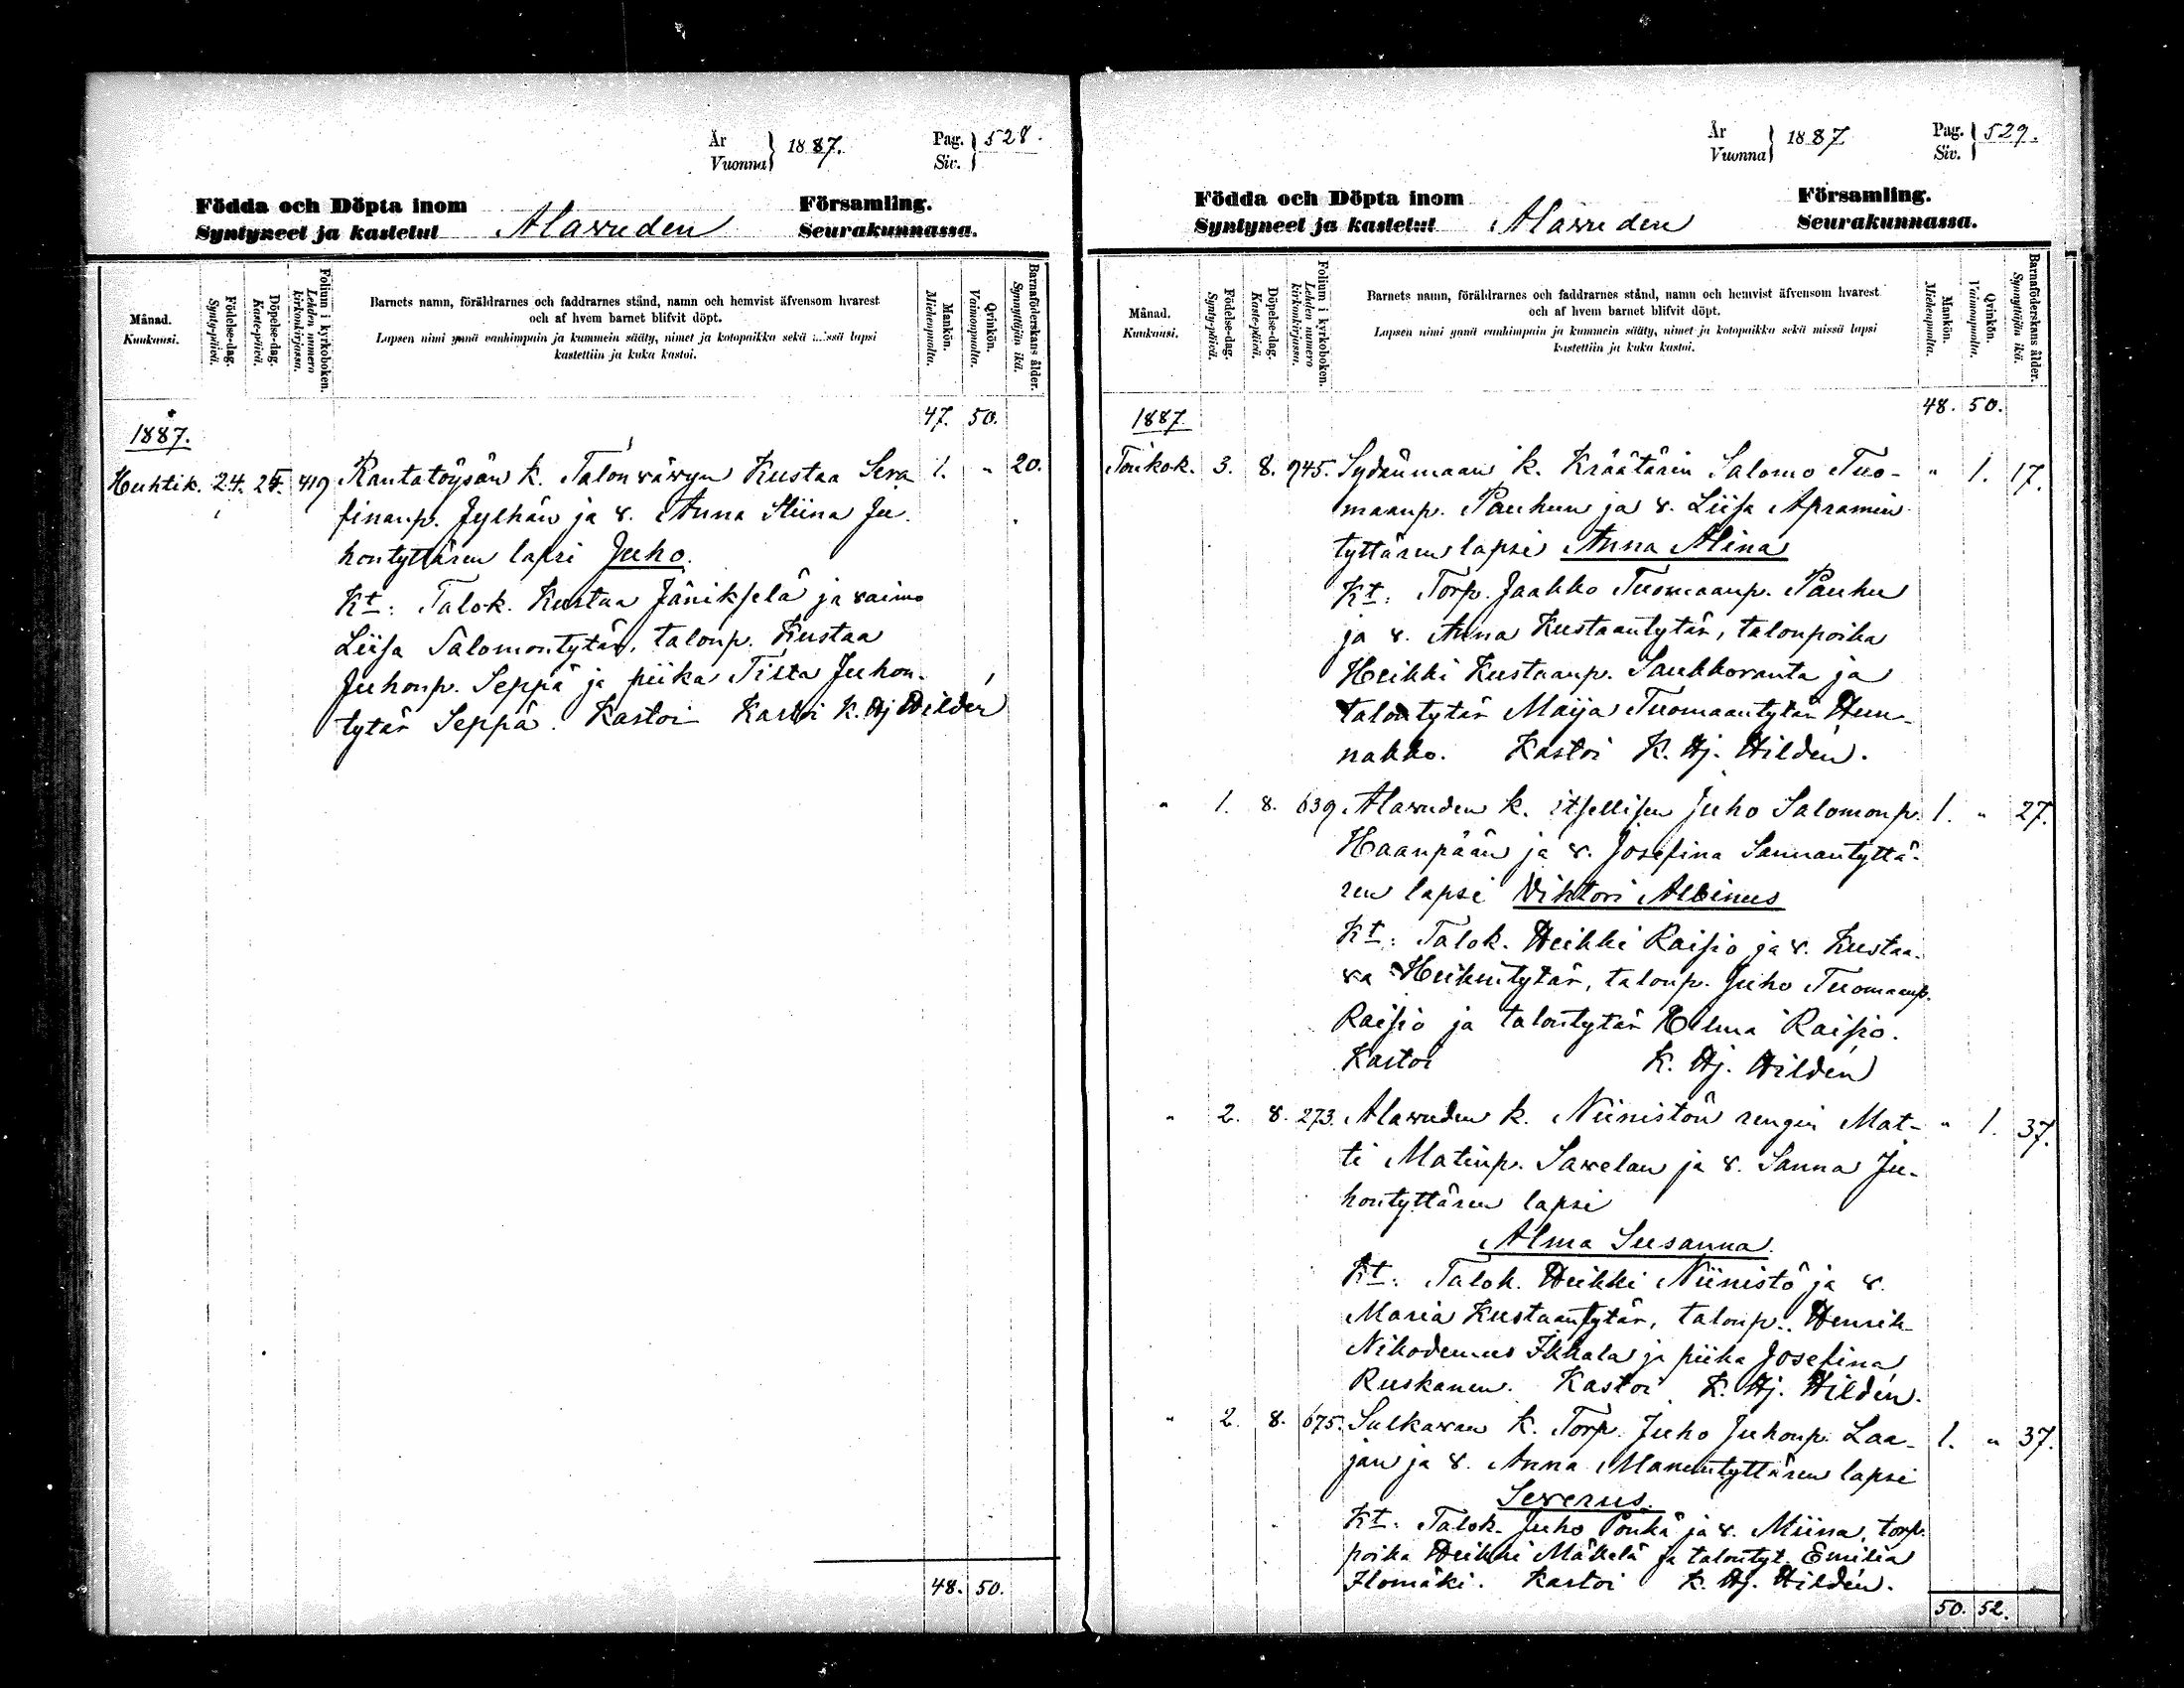 År
Vuonna } 1887.
Pag.
Siv. } 528.
Födda och Döpta inom
Syntyneet ja kastetut
Alawuden
Församling.
Seurakunnassa.
Månad.
Kuukausi.
Födelse-dag.
Synty-päivä.
Döpelse-dag.
Kaste-päivä.
Folium i kyrkoboken.
Lehden numero
kirkonkirjassa.
Barnets namn, föräldrarnes och faddrarnes stånd, namn och hemvist äfvensom hvarest
och af hvem barnet blifvit döpt.
Lapsen nimi ynnä vanhimpain ja kummein sääty, nimet ja kotopaikka sekä missä lapsi
kastettiin ja kuka kastoi.
Mankön.
Miehenpuolta.
Qvinkön.
Vaimonpuolta.
Barnaföderskans ålder.
Synnyttäjän ikä.
47. 50.
1887.
Huhtik. 24. 25. 419 Rantatöysän k. Talon wäwyn Kustaa Sera 1. " 20.
finanp. Jylhän ja v. Anna Stiina Ju.
hontyttären lapsi Juho.
Kt: Talok. Kustaa Jänikselä ja vaimo
Liisa Salomontytär, talonp. Kustaa
Juhonp. Seppä ja piika Tilta Juhon-
tytär Seppä. Kastoi Kastoi K. Hj Hildén
48. 50.
År
Vuonna } 1887
Pag.
Siv. } 529.
Födda och Döpta inom
Syntyneet ja kastetut
Alawuden
Församling.
Seurakunnassa.
Månad.
Kuukausi.
Födelse-dag.
Synty-päivä.
Döpelse-dag.
Kaste-päivä.
Folium i kyrkoboken.
Lehden numero
kirkonkirjassa.
Barnets namn, föräldrarnes och faddrarnes stånd, namn och hemvist äfvensom hvarest
och af hvem barnet blifvit döpt.
Lapsen nimi ynnä vanhimpain ja kummein sääty, nimet ja kotopaikka sekä missä lapsi
kastettiin ja kuka kastoi.
Mankön.
Miehenpuolta.
Qvinkön.
Vaimonpuolta.
Barnaföderskans ålder.
Synnyttäjän ikä.
48. 50.
1887
Toukok. 3. 8. 945. Sydänmaan k. Kräätärin Salomo Tuo- " 1. 17.
maanp. Pauhun ja v. Liisa Apramin
tyttären lapsi Anna Alina
Kt: Torp. Jaakko Tuomaanp. Pauhu
ja v. Anna Kustaantytär, talonpoika
Heikki Kustaanp. Saukkoranta ja
talontytär Maija Tuomaantytär Hun-
nakko. Kastoi K. Hj. Hildén.
" 1. 8. 639. Alawuden k. itsellisen Juho Salomonp. 1. " 27.
Haanpään ja v. Josefina Sannantyttä-
ren lapsi Viktori Albinus
Kt: Talok. Heikki Raisio ja v. Kustaa-
va Heikintytär, talonp. Juho Tuomaanp.
Raisio ja talontytär Hilma Raisio.
Kastoi K. Hj. Hildén
" 2. 8. 273. Alawuden k. Niinistön rengin Mat- " 1. 37.
ti Matinp. Sawelan ja v. Sanna Ju-
hontyttären lapsi
Alma Susanna.
Kt: Talok. Heikki Niinistö ja v.
Maria Kustaantytär, talonp. Henrik
Nikodemus Ikkala ja piika Josefina
Ruskanen. Kastoi K. Hj. Hildén.
" 2. 8. 675. Sulkawan k. Torp. Juho Juhonp. Laa- 1. " 37.
jan ja v. Anna Manentyttären lapsi
Severus.
Kt: Talok. Juho Pönkä ja v. Miina, torp.
poika Heikki Mäkelä ja talontyt. Emilia
Ilomäki. Kastoi K. Hj. Hildén.
50. 52.